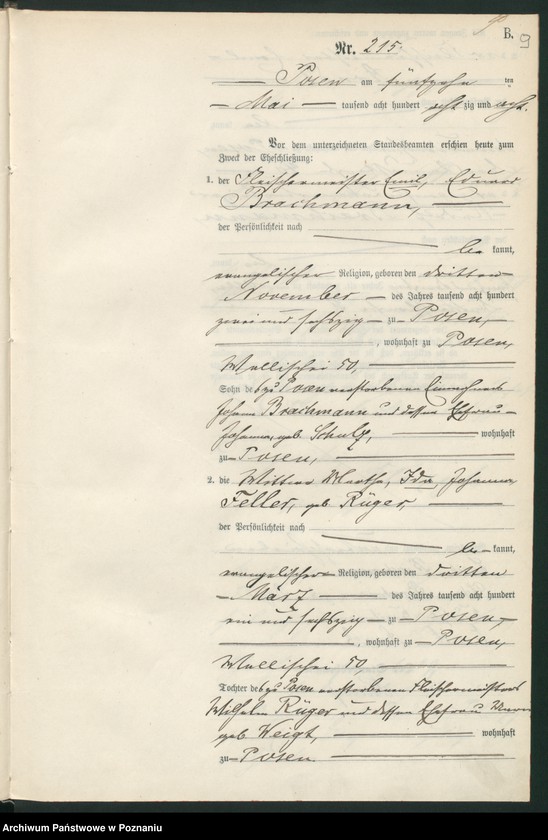 B.
9
Nr. 215.
Posen am fünfzehnten
Mai tausend acht hundert achtzig und acht.
Vor dem unterzeichneten Standesbeamten erschien heute zum
Zweck der Eheschließung:
1. der Fleischermeister Emil, Eduard
Brachmann,
der Persönlichkeit nach
bekannt,
evangelischer Religion, geboren den dritten
November des Jahres tausend acht hundert
zwei und sechszig zu Posen,
, wohnhaft zu Posen,
Wallischei 50,
Sohn des zu Posen verstorbenen Einwohners
Johann Brachmann und dessen Ehefrau
Johanna, geb. Schulz, wohnhaft
zu Posen,
2. die Wittwe Martha, Ida, Johanna
Feller, geb. Rüger,
der Persönlichkeit nach
bekannt,
evangelischer Religion, geboren den dritten
März des Jahres tausend acht hundert
ein und sechszig zu Posen,
, wohnhaft zu Posen,
Wallischei 50,
Tochter des zu Posen verstorbenen Fleischermeisters
Wilhelm Rüger und dessen Ehefrau
geb. Weigt, wohnhaft
zu Posen.
Archiwum Państwowe w Poznaniu